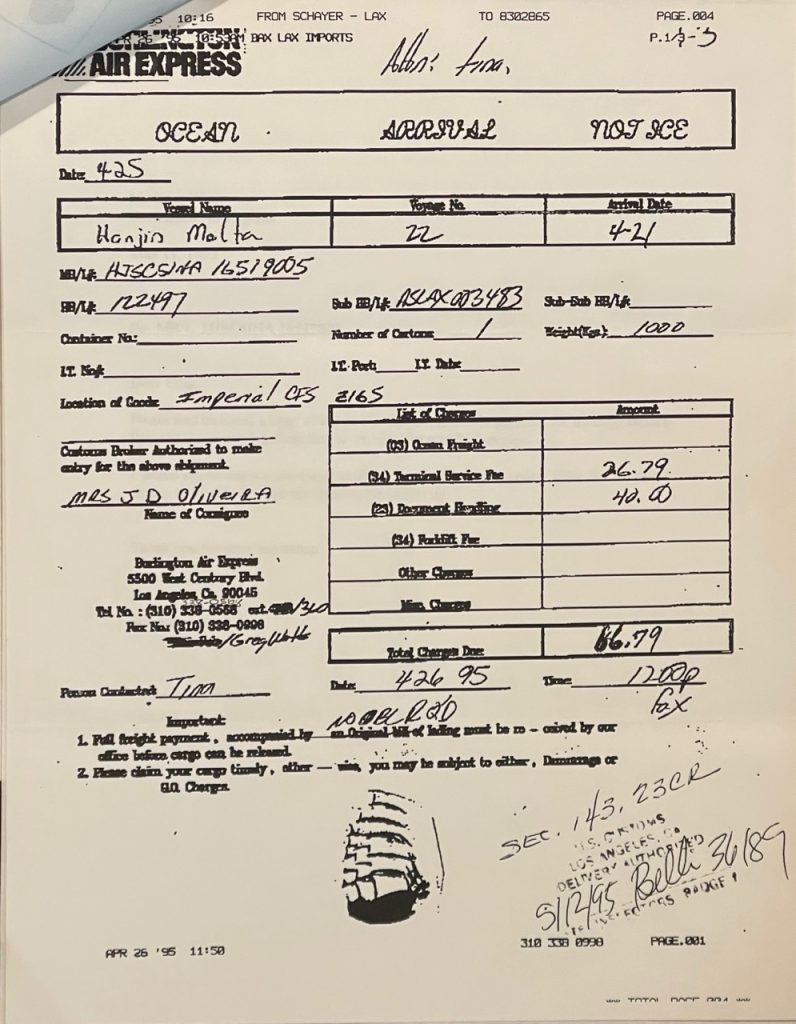 95 10:16 FROM SCHAYER - LAX TO 8302865 PAGE.004
APR 26 '95 10:53AM BAX LAX IMPORTS P.1/3-3
BURLINGTON
AIR EXPRESS
Attn: Tina,
OCEAN ARRIVAL NOTICE
Date: 4-25
Vessel Name Voyage No. Arrival Date
Hanjin Malta 22 4-21
MB/L#: HJSCSINA 16519005
HB/L#: 122497 Sub HB/L#: ASLAX003483 Sub-Sub HB/L#:
Container No.: Number of Cartons: 1 Weight(Kgs): 1000
I.T. No#: I.T. Port: I.T. Date:
Location of Goods: Imperial CFS Z165
List of Charges Amount
(03) Ocean Freight
Customs Broker Authorized to make
entry for the above shipment.
(34) Terminal Service Fee 26.79
MRS J D OLIVEIRA
Name of Consignee
(23) Document Handling 40.00
(34) Forklift Fee
Other Charges
Misc. Charges
Burlington Air Express
5300 West Century Blvd.
Los Angeles, Ca, 90045
Tel No. : (310) 338-0568 ext. /310
Fax No.: (310) 338-0998
/Greg Watts
Total Charges Due: 66.79
Person Contacted: Tina Date: 4 26 95 Time: 1200p
Fax
Important:
1. Full freight payment , accompanied by an Original bill of lading must be re - ceived by our
office before cargo can be released.
2. Please claim your cargo timely, other — wise, you may be subject to either , Demurrage or
G.O. Charges.
SEC. 143.23CR
U.S. CUSTOMS
LOS ANGELES, CA
DELIVERY AUTHORIZED
5/12/95 36189
INSPECTORS BADGE #
APR 26 '95 11:50 310 338 0998 PAGE.001
** TOTAL PAGE.004 **